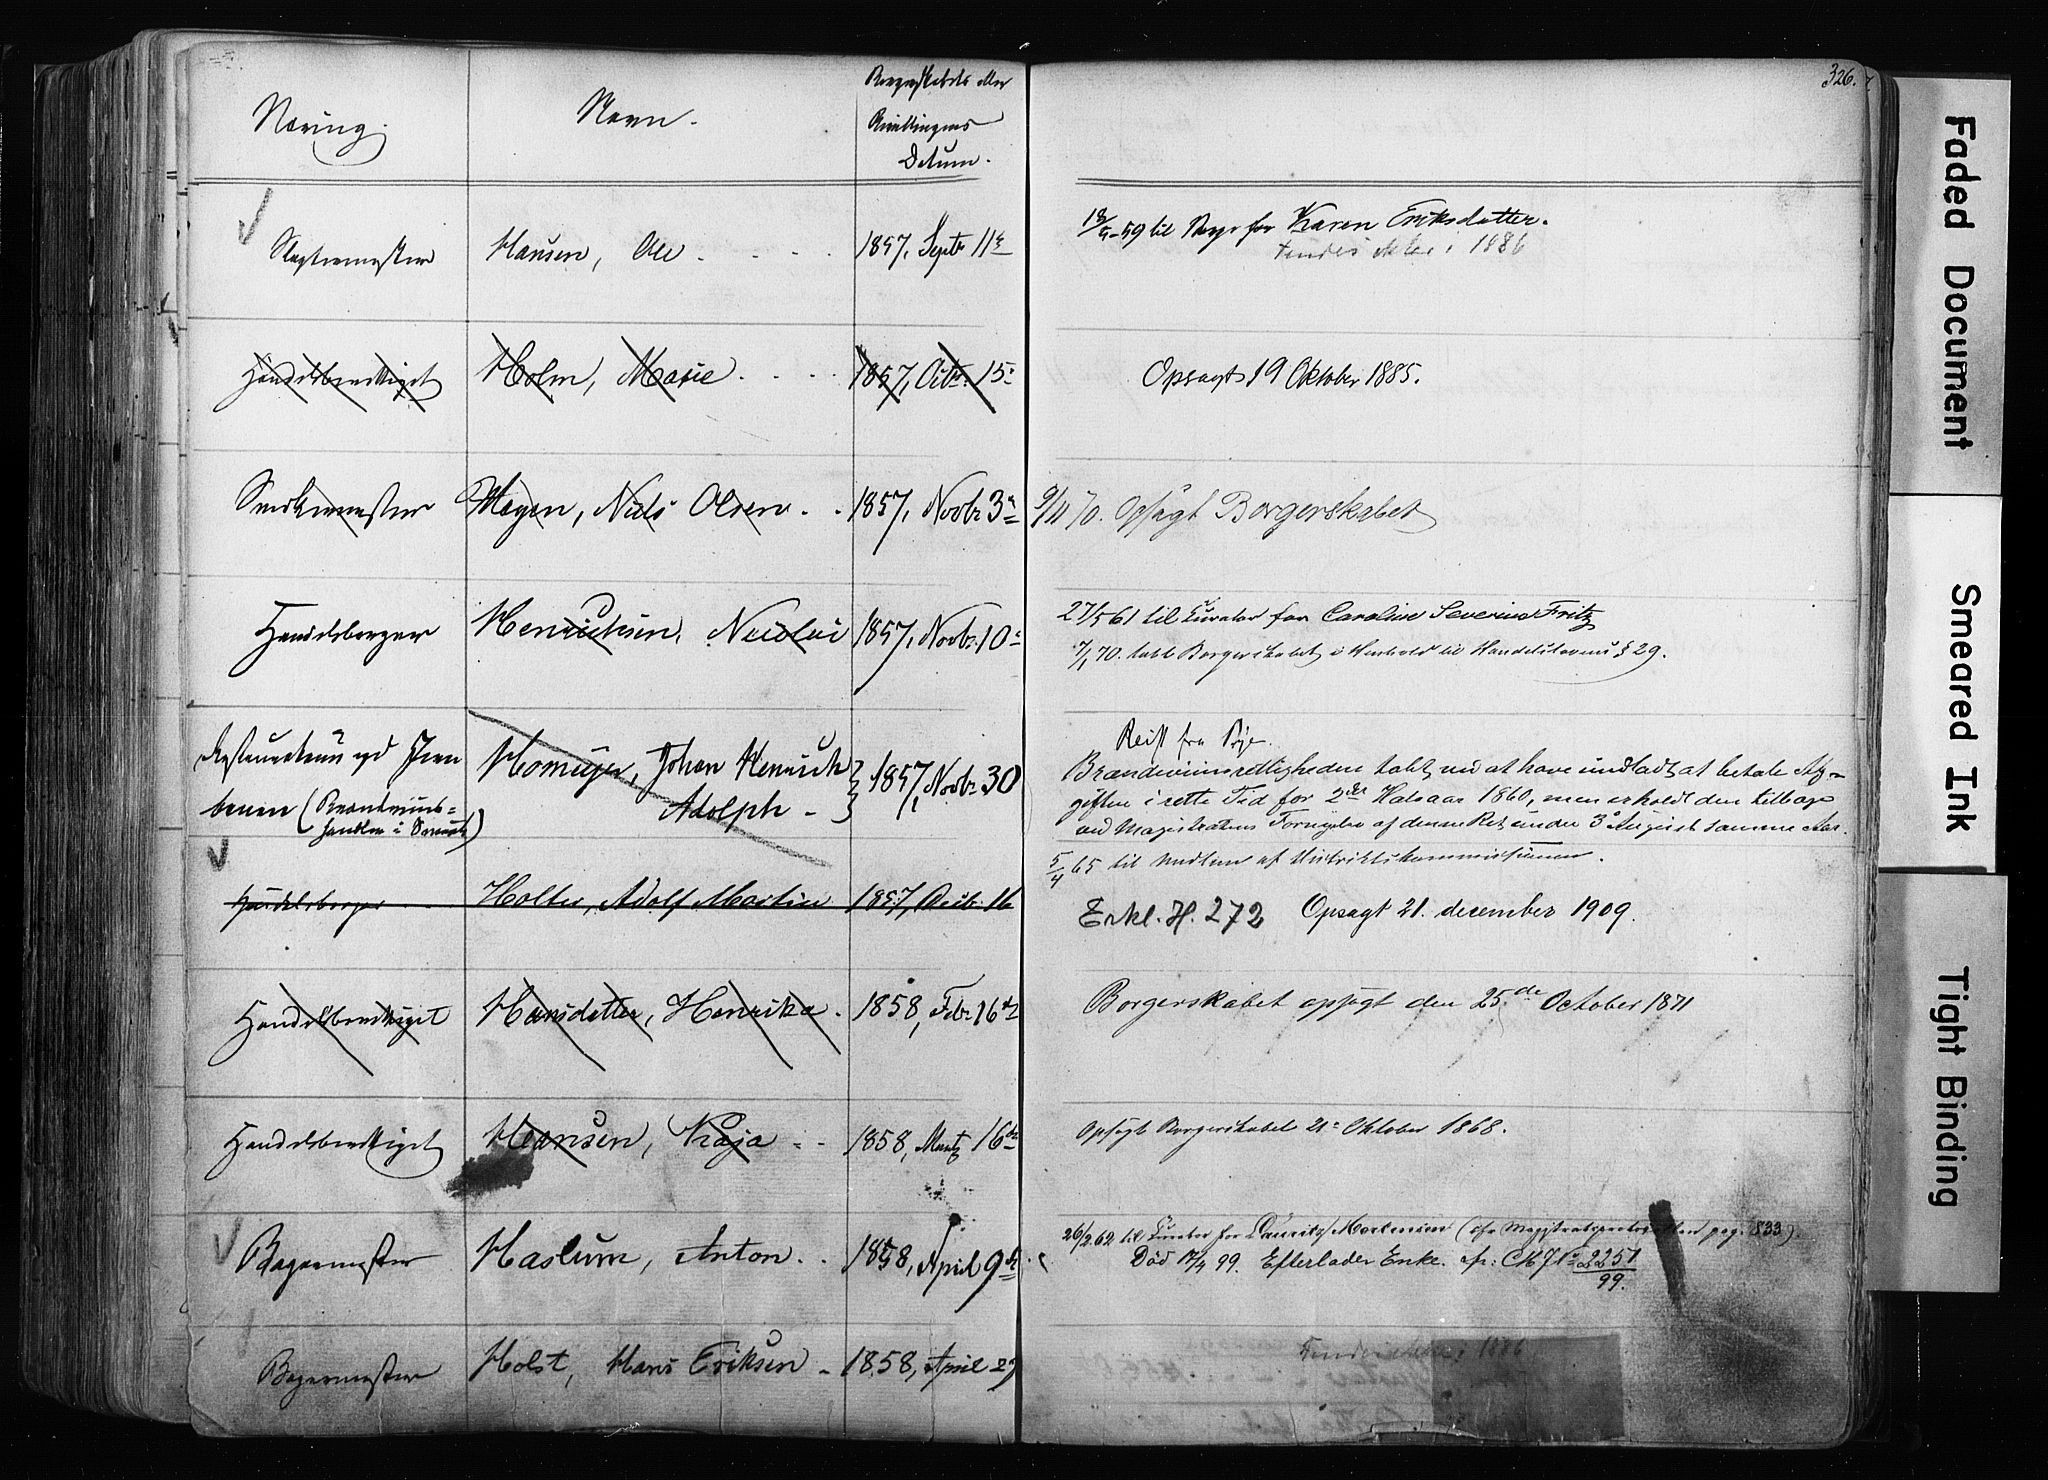 326.
Næring.
Navn.
Borgerskabets eller
Bevillingens
Datum.
Slagtermester Hansen, Ole 1857, Septr 11te
18/5-59 til Værge for Karen Eriksdatter.
Findes ikke i 1886
Handelsberettiget Holm, Marie 1857, Octr 15de
Opsagt 19 Oktober 1885.
Snedkermester Hagen, Niels Olsen 1857, Novbr 3die
9/11 70. Opsagt Borgerskabet
Handelsborger Henriksen, Nicolai 1857, Novbr 10de
27/5 61 til Curator for Caroline Severine Fritz
7/1 70. tabt Borgerskabet i Henhold til Handelslovens § 29.
Restaurateur ved Jern
banen (Brændeviins=
handler i Smaat)
Homeyer, Johan Henrich
Adolph
1857, Novbr 30
Reist fra Byen.
Brændeviinsrettigheden tabt ved at have undladt at betale Af=
giften i rette Tid for 2det Halvaar 1860, men erholdt den tilbage
ved Magistratens Fornyelse af denne Ret under 3 August samme Aar.
5/4 65 til Medlem af Districtskommissionen.
Handelsborger Holter, Adolf Martin 1857, Decbr 16
Erkl. H. 272 Opsagt 21. december 1909.
Handelsberettiget Hansdatter, Henrika 1858, Febr 16de
Borgerskabet opsagt den 25de October 1871
Handelsberettiget Hansen, Kaja 1858, Marts 16de
Opsagt Borgerskabet 21 Oktober 1868.
Bagermester Haslum, Anton 1858, April 9de
26/2 62 til Curator for Mortensen (cfr Magistratsprotocollen pag. 833).
Død 17/4 99. Efterlader Enke. cfr: M J No 2251/99.
Bagermester Holst, Hans Eriksen 1858, April 27
Findes ikke i 1886
Faded Document
Smeared Ink
Tight Binding